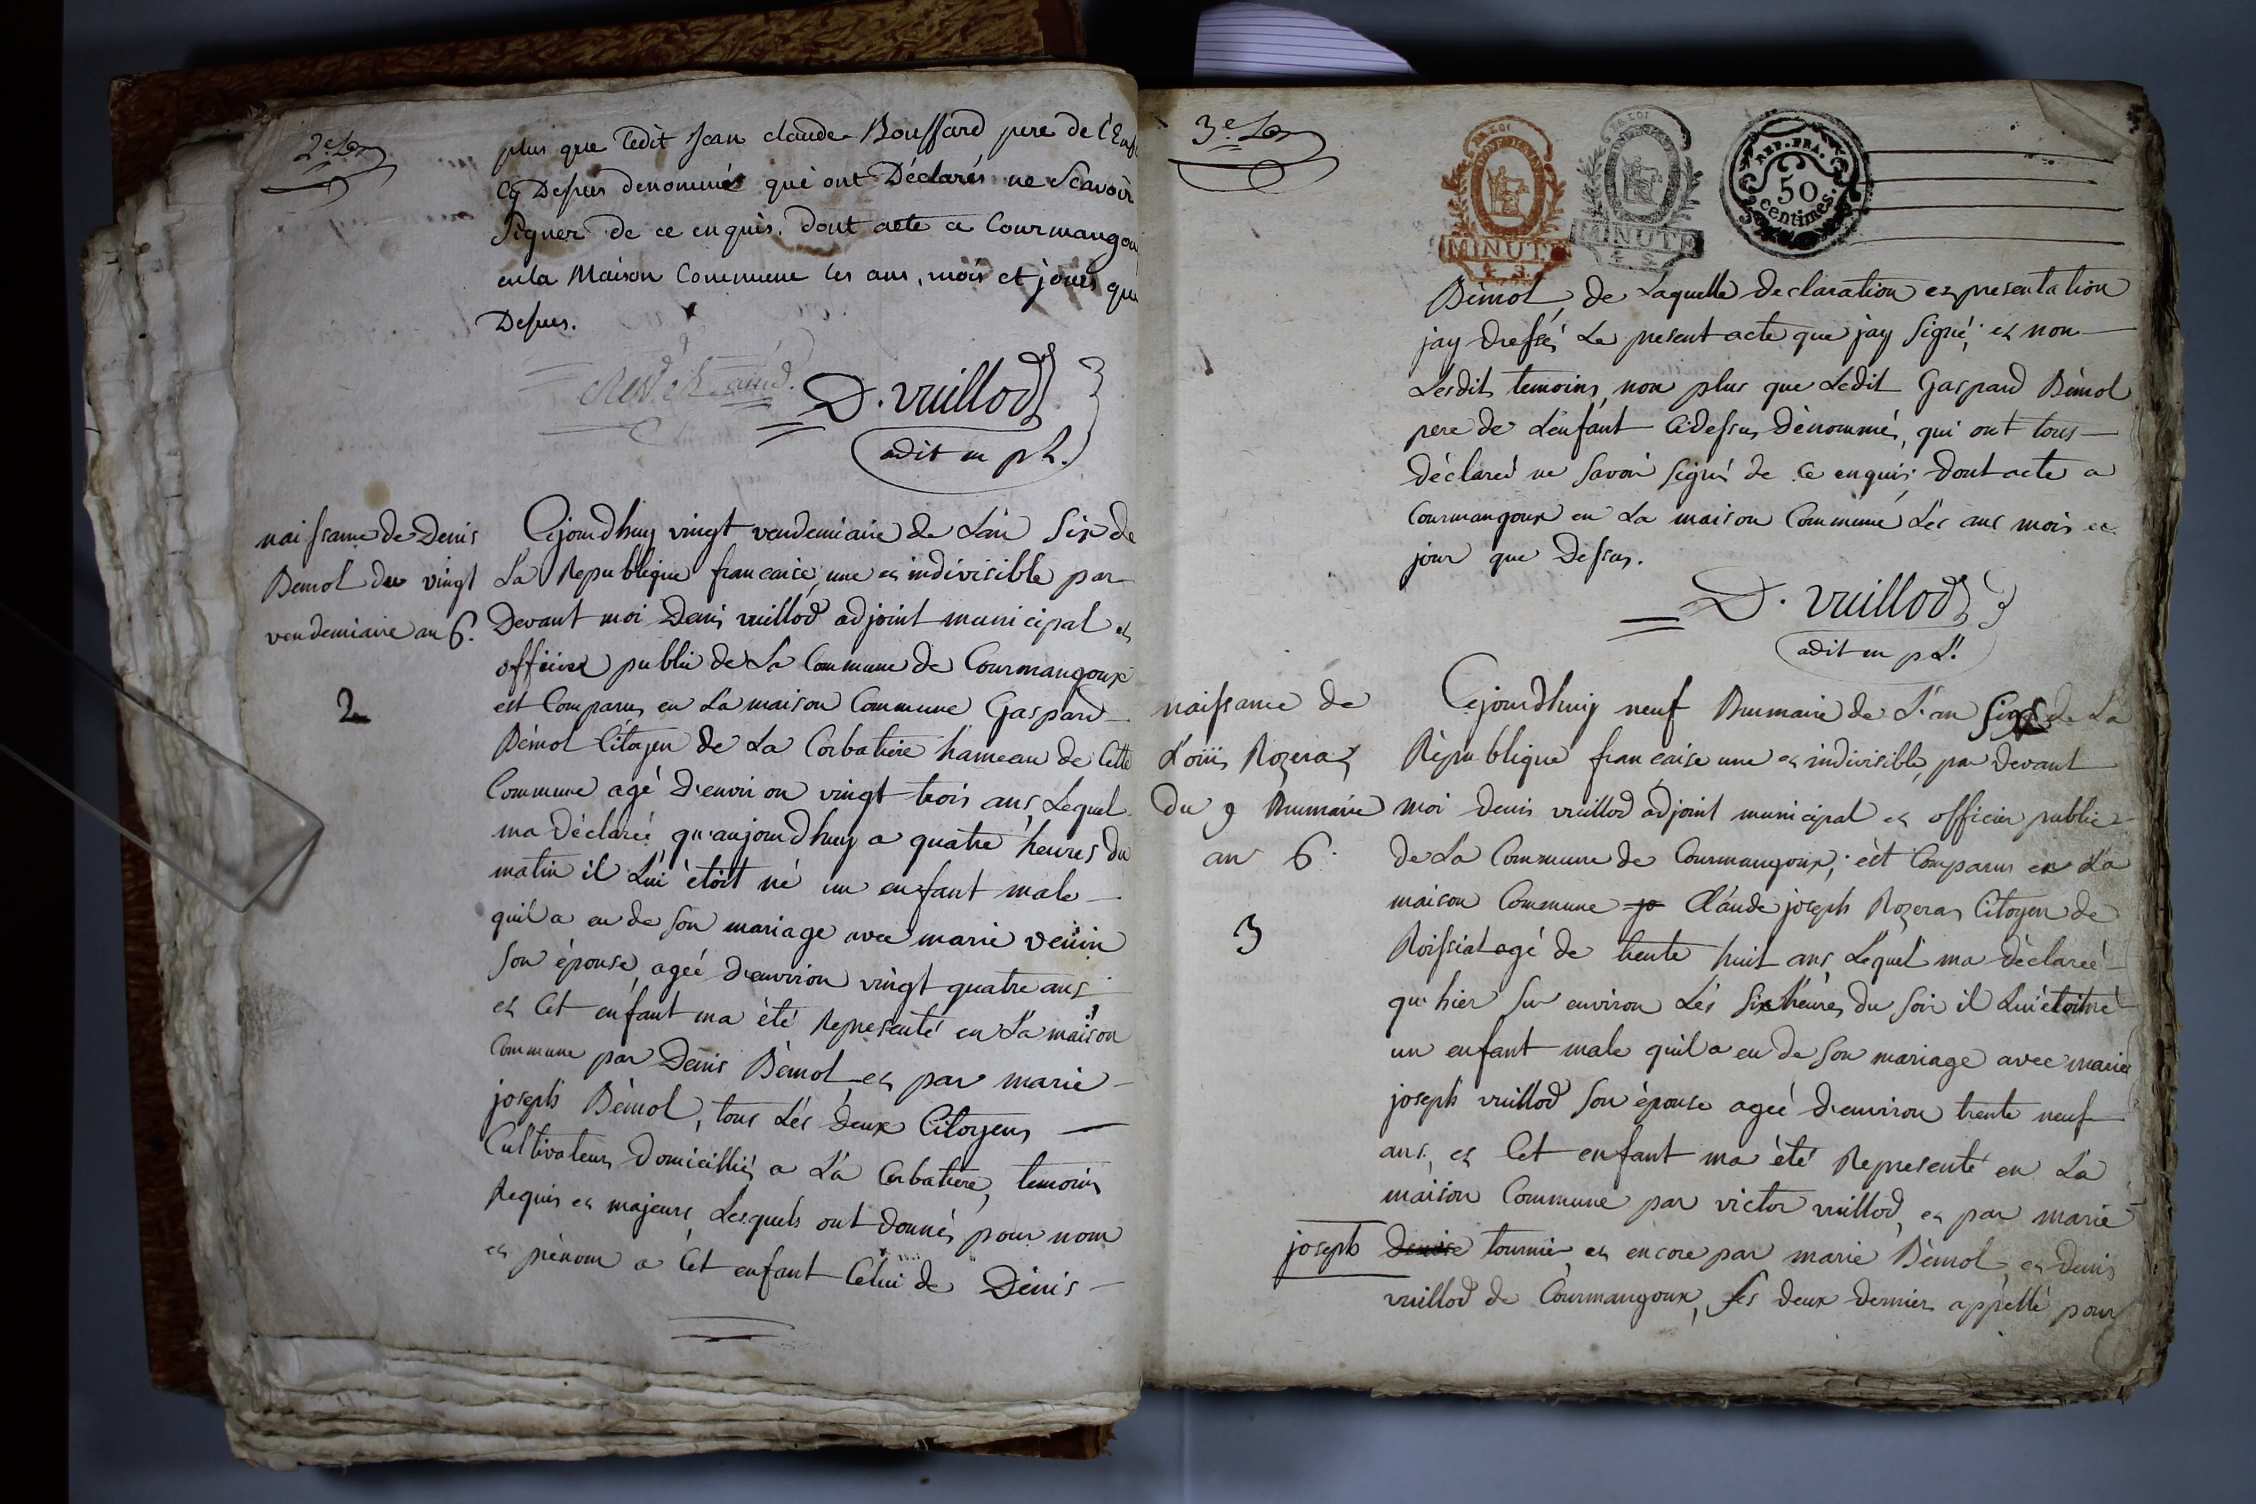 2e
plus que ledit Jean claude Bouffard pere de l'Enf
Cy Desus denommés qui ont Déclarés ne Scavoir
Signer de ce enquis. dont acte a Courmangou
en la Maison Commune les ans, mois et jours que
Desus.
D. vuillod
adit m pl.
naissance de Denis
Bémol du vingt
vendemiaire an 6.
2
Cejourdhuy vingt vendemiaire de L'an Six de
La Republique francaise, une et indivisible par
Devant moi Denis vuillod adjoint municipal et
officier public de La Commune de Courmangoux
est Comparus en La maison Commune Gaspard
Bémol Citoyen de La Corbatiere hameau de Cette
Commune agé D'environ vingt trois ans, Lequel
ma Déclareé qu'aujourdhuy a quatre heures du
matin il Lui étoit né un enfant male
quil a eu de Son mariage avec marie venin
Son épouse agéé d'environ vingt quatre ans
et Cet enfant ma été Representé en La maison
Commune par Denis Bémol et par marie
joseph Bémol, tous Lés deux Citoyens
Cultivateurs Domicilliés a La Corbatiere, temoins
Requis et majeurs Lesquels ont donnés pour nom
et prénom a Cet enfant Celui de Dénis
3e
MINUTE
MINUTE
REP. FRA.
50
centimes
Bémol, de Laquelle declaration et presentation
jay dressé Le present acte que jay Signé, et non
Lesdits temoins, non plus que Ledit Gaspard Bémol
pere de L'enfant Cidessus dénommés, qui ont tous
déclareé ne Savoir Signés de Ce enquis; dont acte a
Courmangoux en La maison Commune Lés ans mois et
jour que Dessus.
D. vuillod
adit m pl.
naissance de
Loüis Rozeraz
Du 9 Brumaire
an 6.
3
Cejourdhuy neuf Brumaire de L'an Six de La
République francaise une et indivisible, par devant
moi denis vuillod adjoint municipal et officier public
de La Commune de Courmangoux; est Comparus en La
maison Commune jo Claude joseph Rozeraz Citoyen de
Roissiat agé de trente huit ans, Lequel ma déclareé
qu'hier Sur environ Lés Six heures du Soir il Lui étoit né
un enfant male quil a eu de Son mariage avec marie
joseph vuillod Son épouse ageé d'environ trente neuf
ans, et Cet enfant ma été Representé en La
maison Commune par victor vuillod, et par marie
joseph denise tournier, et encore par marie Bémol, et denis
vuillod de Courmangoux, Les deux dernier appellé pour